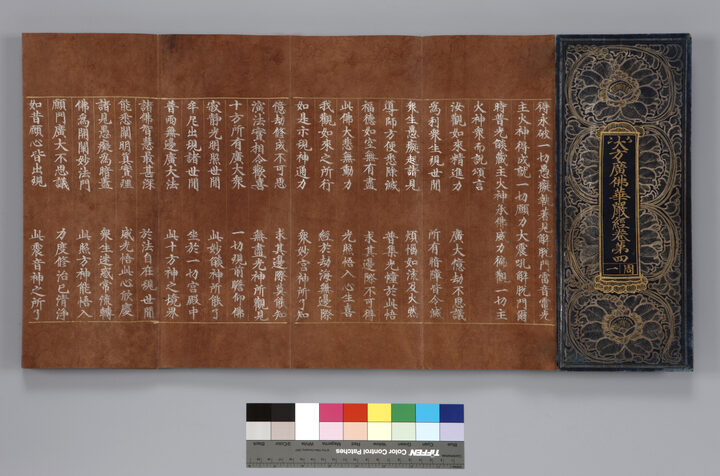 大方廣佛華嚴經卷第四
周一
得永破一切愚癡執著見解脫門雷音電光
主火神得成就一切願力大震吼解脫門爾
時普光焰藏主火神承佛威力徧觀一切主
火神衆而說頌言
汝觀如來精進力 廣大億劫不思議
為利衆生現世間 所有暗障皆令滅
衆生愚癡起諸見 煩惱如流及火然
導師方便悉除滅 普集光幢於此悟
福德如空無有盡 求其邊際不可得
此佛大悲無動力 光照悟入心生喜
我觀如來之所行 經於劫海無邊際
如是示現神通力 衆妙宮神所了知
億劫修成不可思 求其邊際莫能知
演法實相令歡喜 無盡光神所觀見
十方所有廣大衆 一切現前瞻仰佛
寂靜光明照世間 此妙焰神所能了
牟尼出現諸世間 坐於一切宮殿中
普雨無邊廣大法 此十方神之境界
諸佛智慧最甚深 於法自在現世間
能悉闡明真實理 威光悟此心欣慶
諸見愚癡為暗蓋 衆生迷惑常流轉
佛為開闡妙法門 此照方神能悟入
願門廣大不思議 力度修治已清淨
如昔願心皆出現 此震音神之所了
Blue Cyan Green Yellow Red Magenta White 3/Color Black
TIFFEN Color Control Patches